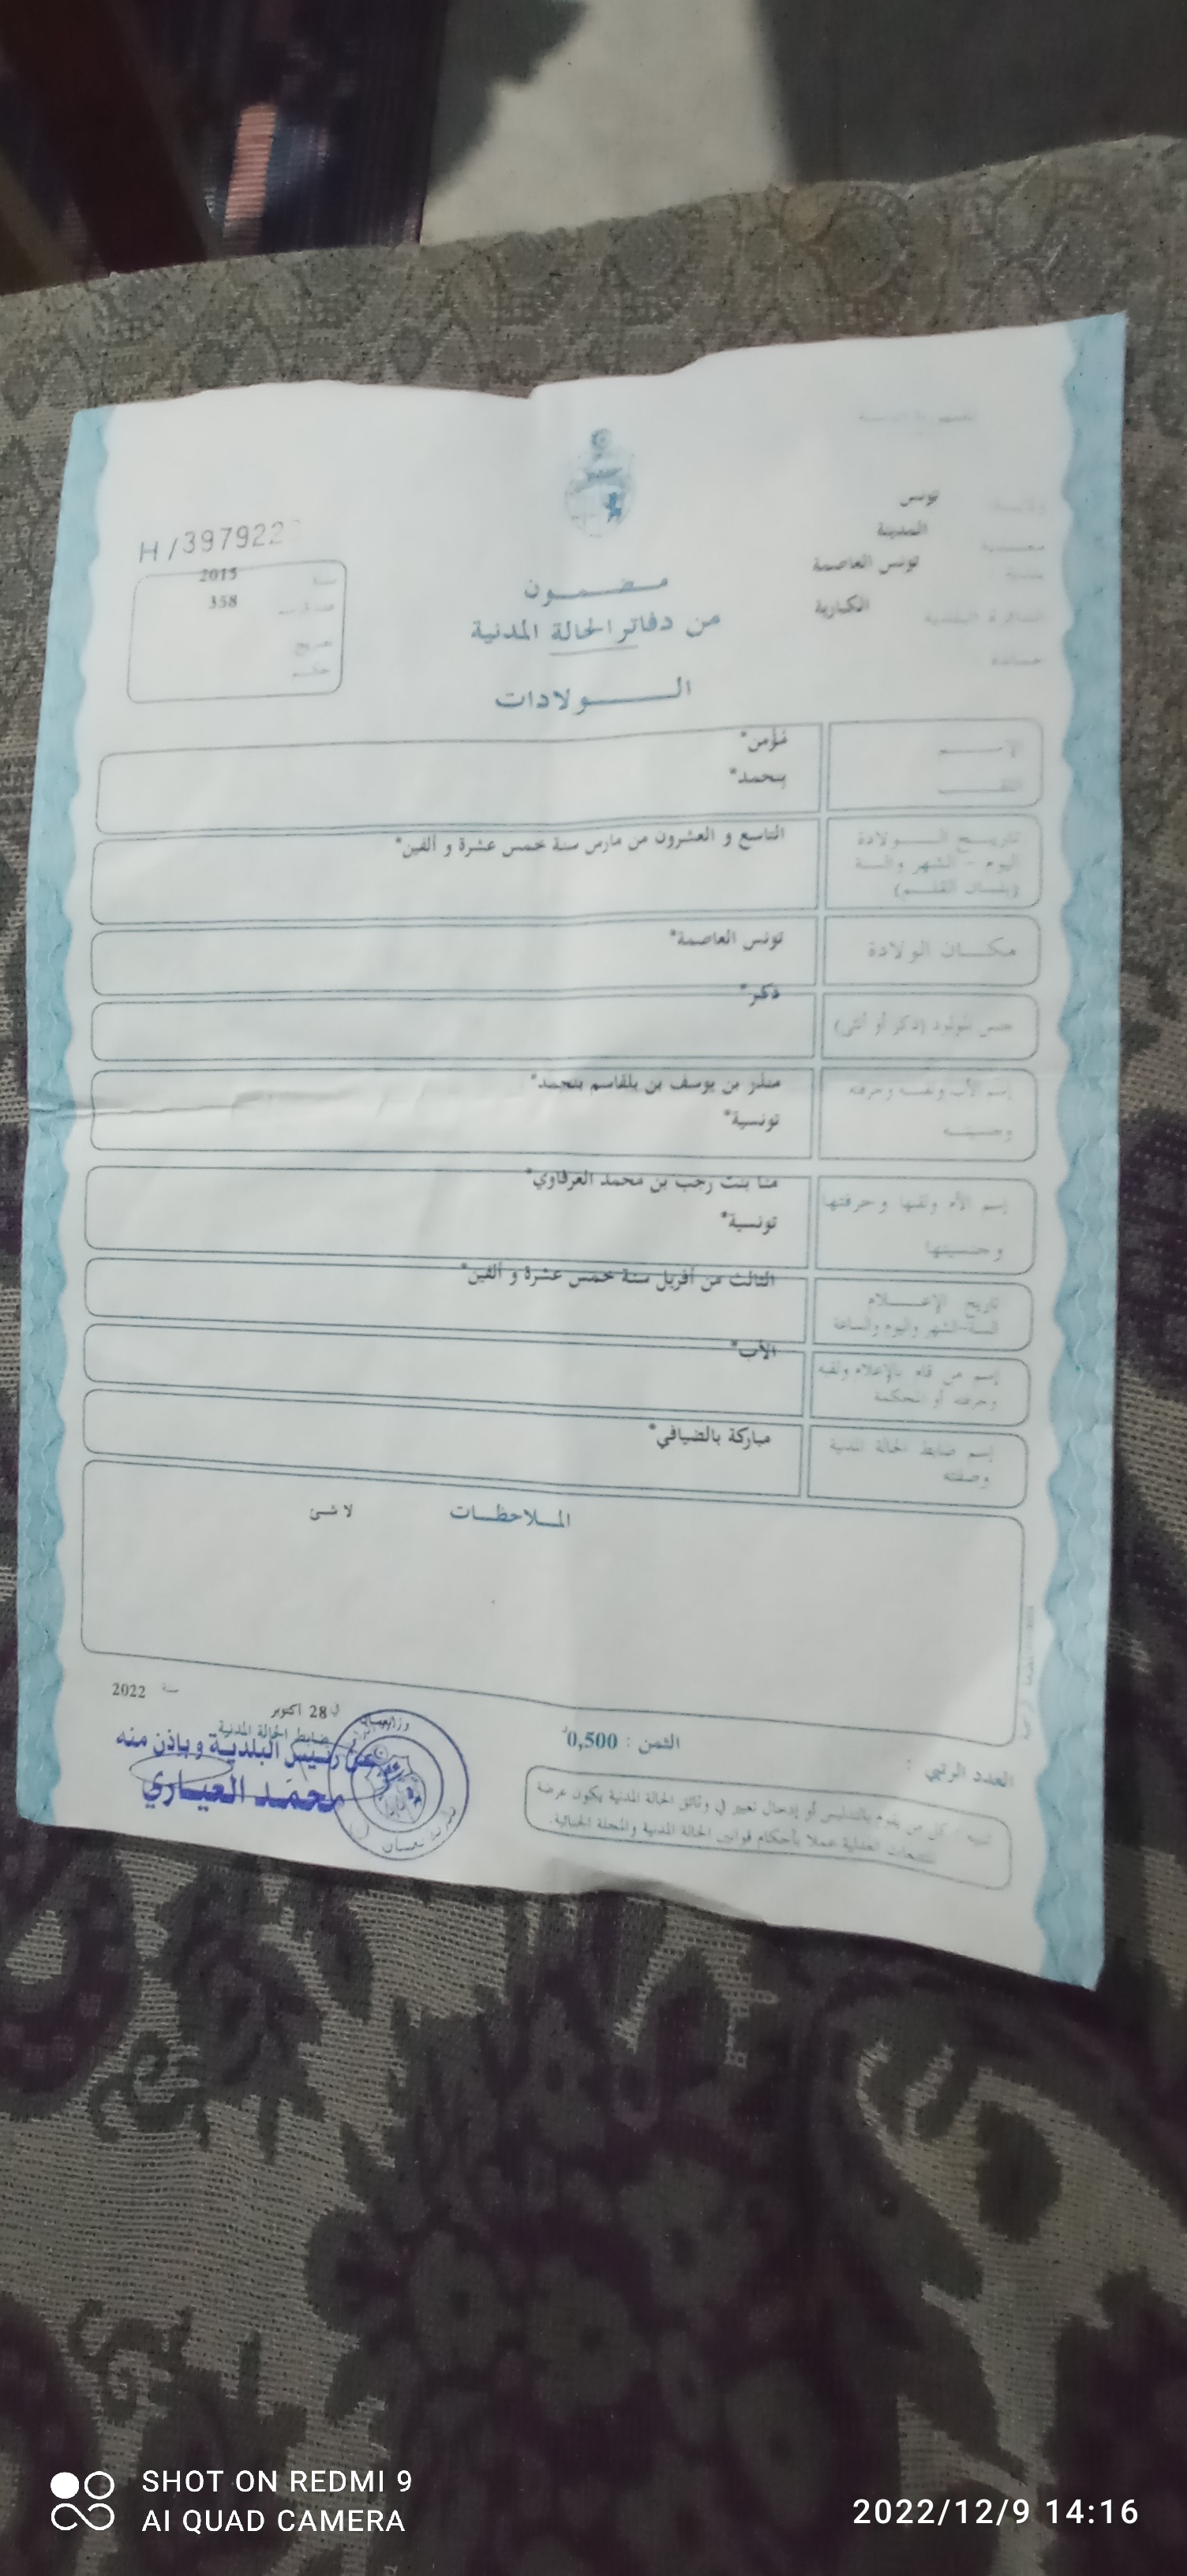 الجمهورية التونسية
ولاية تونس
معتمدية المدينة
بلدية تونس العاصمة
الدائرة البلدية الكبارية
H/397922
سنة 2015
358
مضمون
من دفاتر الحالة المدنية
الولادات
الاسم مؤمن*
اللقب بنحمد*
تاريخ الولادة
اليوم - الشهر والسنة
(بلسان القلم)
التاسع و العشرون من مارس سنة خمس عشرة و ألفين*
مكان الولادة تونس العاصمة*
جنس المولود (ذكر أو أنثى) ذكر*
إسم الأب ولقبه وحرفته منذر بن يوسف بن بلقاسم بنحمد*
وجنسيته تونسية*
إسم الأم ولقبها وحرفتها منا بنت رجب بن محمد العرفاوي*
وجنسيتها تونسية*
تاريخ الإعلام
السنة-الشهر واليوم والساعة
الثالث من أفريل سنة خمس عشرة و ألفين*
إسم من قام بالإعلام ولقبه
وحرفته أو المحكمة
الأب*
إسم ضابط الحالة المدنية
وصفته
مباركة بالضيافي*
الملاحظات لا شئ
في 28 أكتوبر سنة 2022
ضابط الحالة المدنية
عن رئيس البلدية وبإذن منه
محمد العياري
الثمن : 0,500د
العدد الرتبي :
تنبيه : كل من يقوم بالتدليس أو إدخال تغيير في وثائق الحالة المدنية يكون عرضة
للتتبعات العدلية عملا بأحكام قوانين الحالة المدنية والمجلة الجنائية.
SHOT ON REDMI 9
AI QUAD CAMERA
2022/12/9 14:16